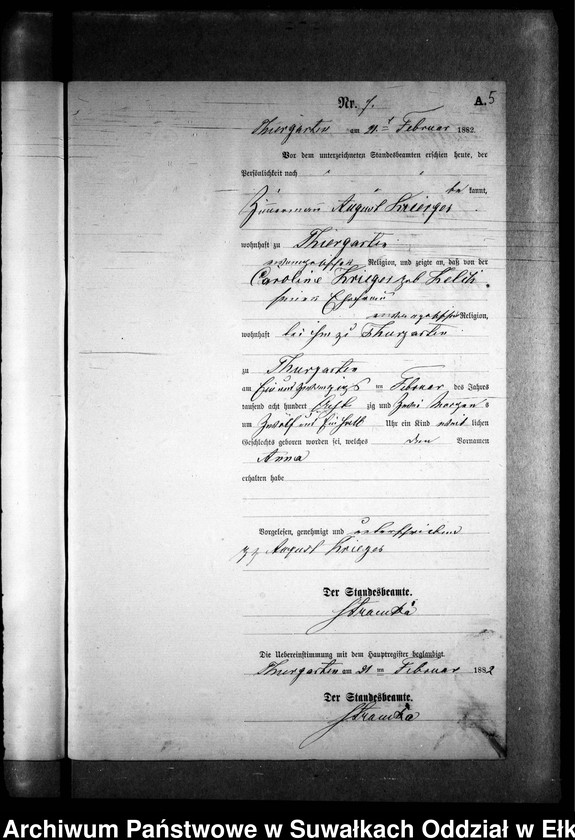 Nr. 7.
A. 5
Thiergarten am 21ᵗ Februar 1882.
Vor dem unterzeichneten Standesbeamten erschien heute, der
Persönlichkeit nach
be kannt,
August Krieger
wohnhaft zu Thiergarten
evangelischer Religion, und zeigte an, daß von der
Caroline Krieger geb
seiner Ehefrau
evangelischer Religion,
wohnhaft bei ihm zu Thiergarten
zu Thiergarten
am Ein und zwanzigs ten Februar des Jahres
tausend acht hundert acht zig und zwei Morgens
um Zwölf und Ein halb Uhr ein Kind weib lichen
Geschlechts geboren worden sei, welches den Vornamen
Anna
erhalten habe
Vorgelesen, genehmigt und unterschrieben
August Krieger
Der Standesbeamte.
Die Uebereinstimmung mit dem Hauptregister beglaubigt.
Thiergarten am 21 ten Februar 1882
Der Standesbeamte.
Archiwum Państwowe w Suwałkach Oddział w Ełk